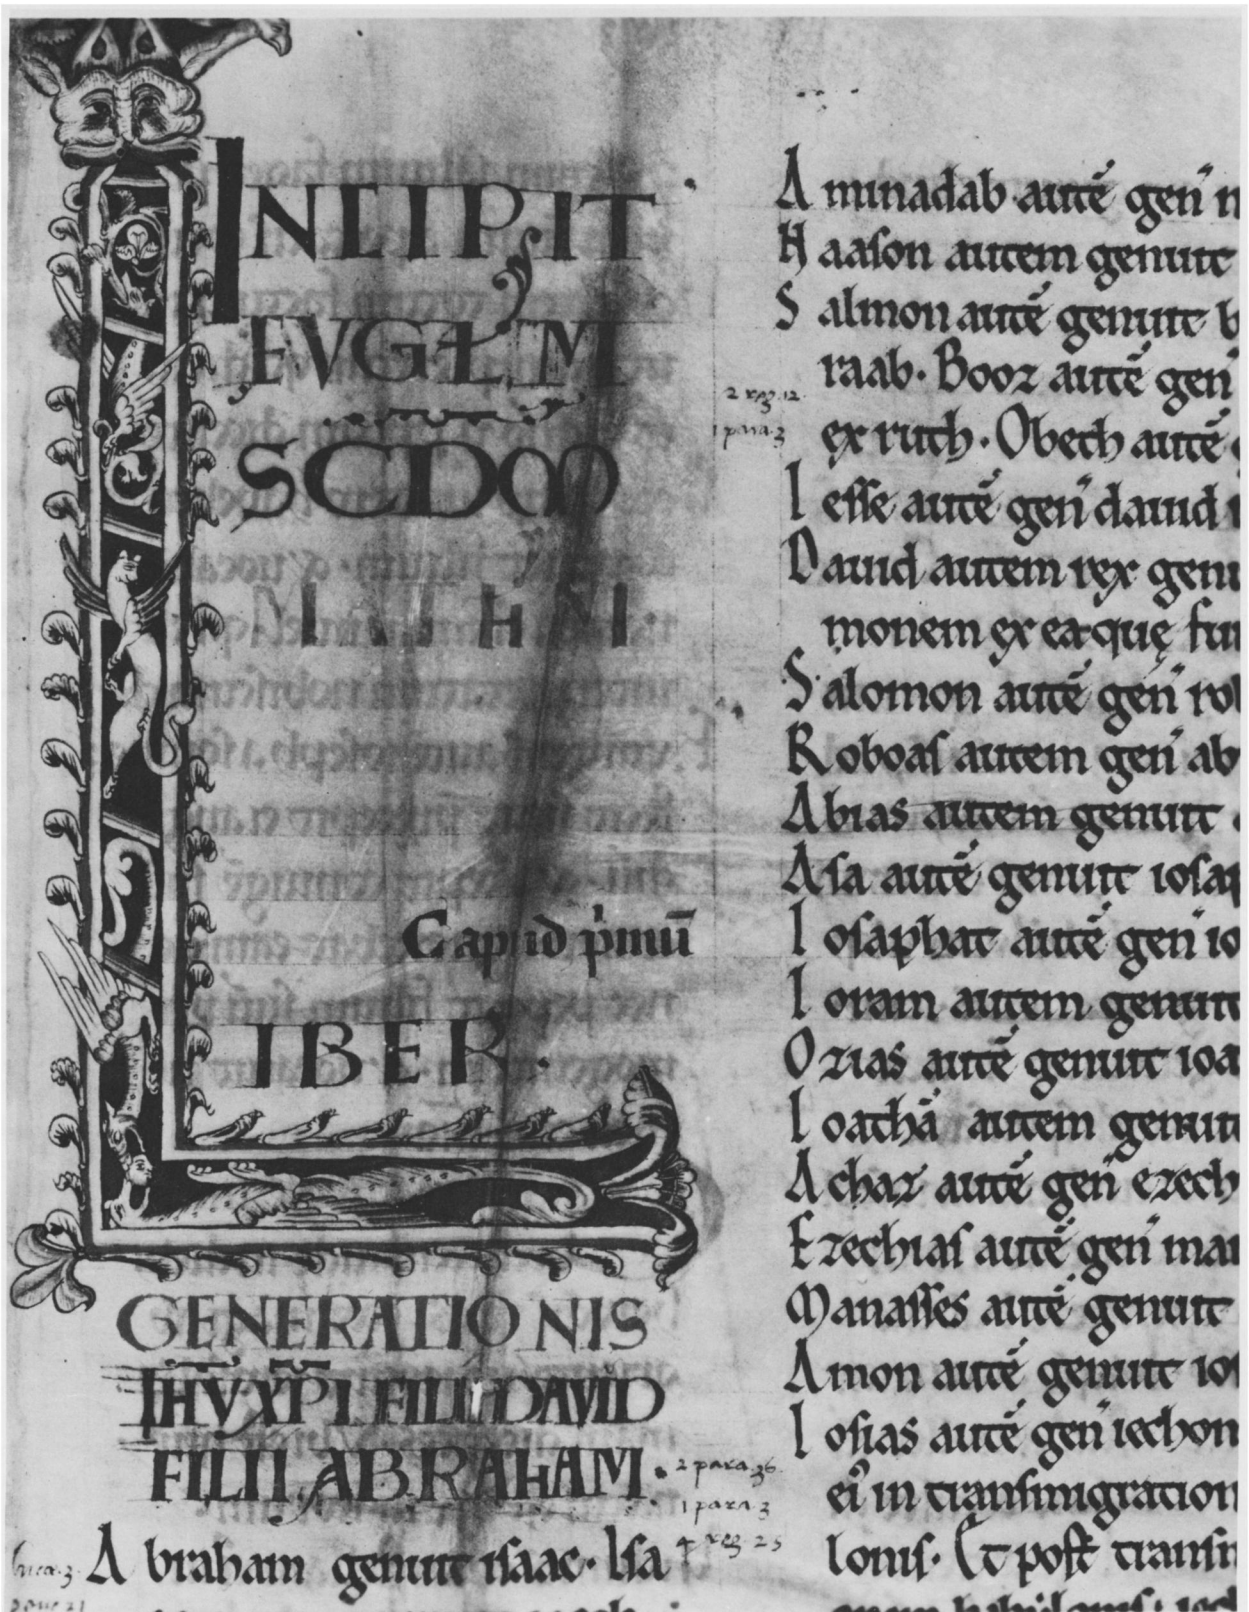 INCIPIT
EVGLM
SCDM
MATHM
Capid p'muū
LIBER.
GENERATIONIS
IHV XPI FILII DAVID
FILII ABRAHAM.
Abraham genuit isaac. Isa
2 reg. 12.
1 para. 3
2 para. 36
1 para. 3
4 reg 25
luca. 3.
Aminadab autē gen̄ n
Naason autem genuit
Salmon autē genuit b
raab. Booz autē gen̄
ex ruth. Obeth autē
Iesse autē gen̄ dauid
Dauid autem rex genu
monem ex ea que fu
Salomon autē gen̄ ro
Roboas autem gen̄ ab
Abias autem genuit
Asa autē genuit iosap
Iosaphat autē gen̄ io
Ioram autem genuit
Ozias autē genuit ioa
Ioathā autem genuit
Achaz autē gen̄ ezech
Ezechias autē gen̄ man
Manasses autē genuit
Amon autē genuit io
Iosias autē gen̄ iechon
ei' in transmigration
lonis. Et post transm